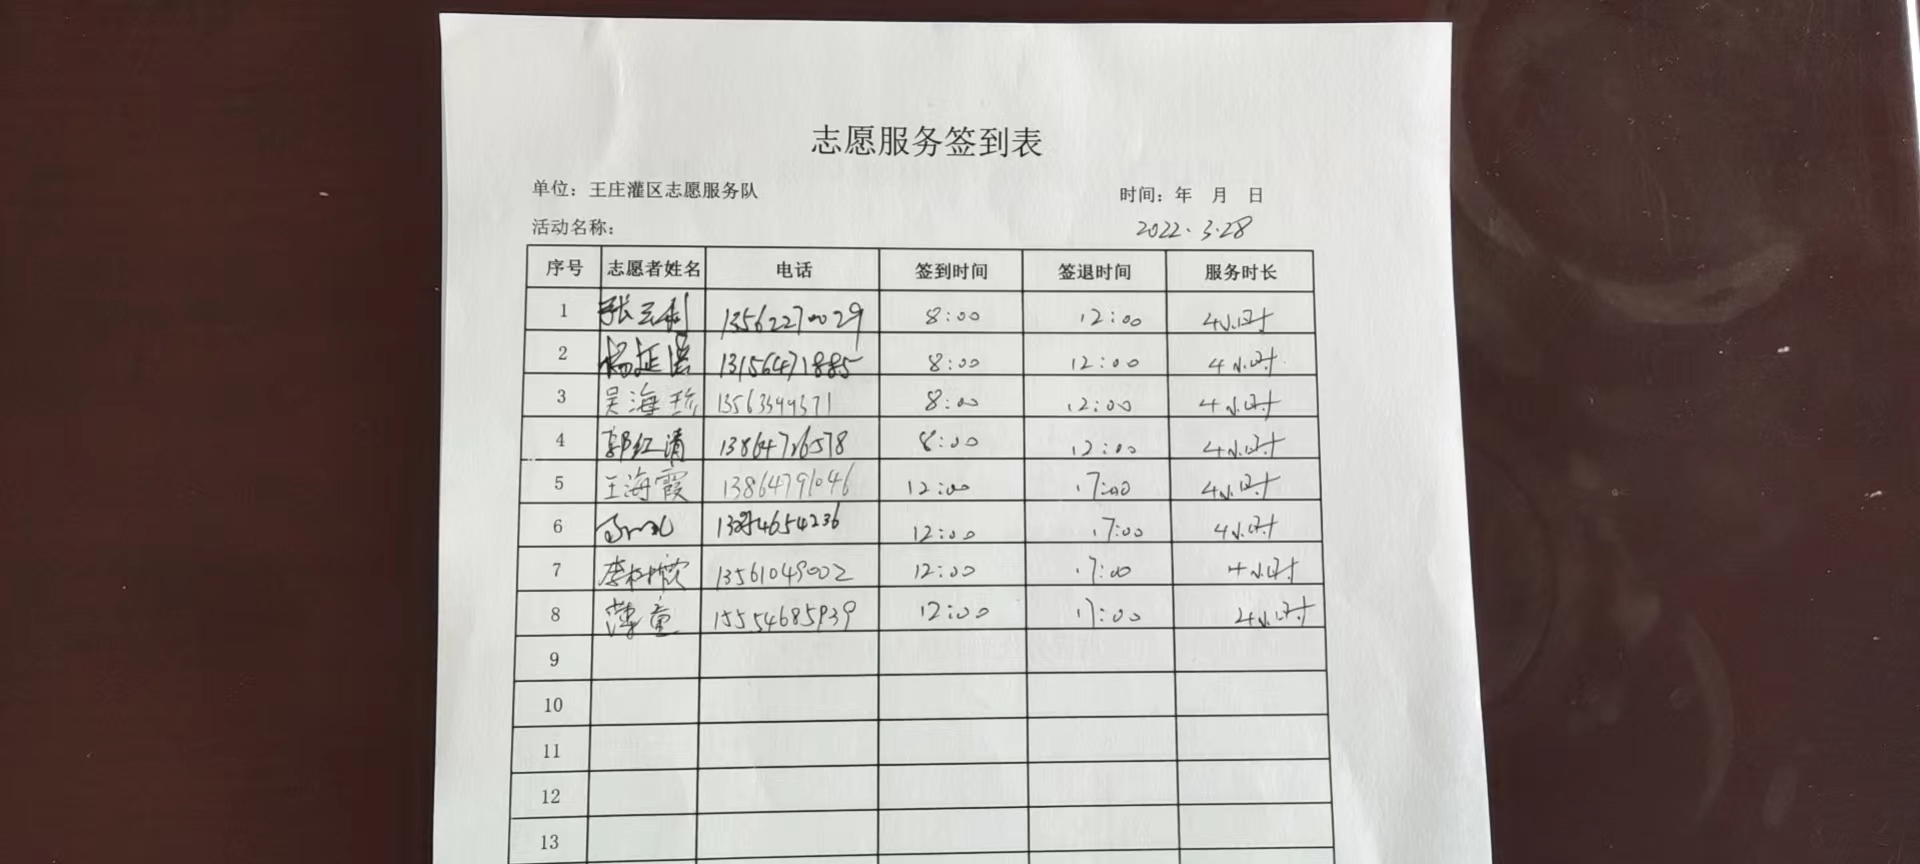 志愿服务签到表
单位：王庄灌区志愿服务队 时间：年 月 日
活动名称： 2022.3.28
序号 志愿者姓名 电话 签到时间 签退时间 服务时长
1 张三利 13562270029 8:00 12:00 4小时
2 杨延 13156471885 8:00 12:00 4小时
3 吴海珍 8:00 12:00 4小时
4 郭红清 8:00 12:00 4小时
5 王海霞 13864791046 12:00 17:00 4小时
6 12:00 17:00 4小时
7 李 13561049002 12:00 17:00 4小时
8 薄童 15554685939 12:00 17:00 4小时
9
10
11
12
13